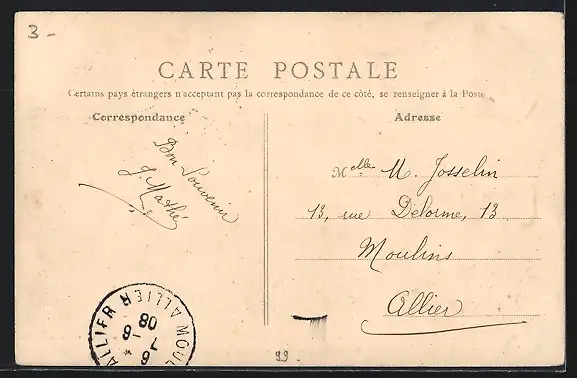 3-
CARTE POSTALE
Certains pays étrangers n'acceptant pas la correspondance de ce côté, se renseigner à la Poste
Correspondance
Adresse
Bon Souvenir
J. Mathé
Melle M. Josselin
13, rue Delorme, 13
Moulins
Allier
MOUL
ALLIER
ALLIER
08
7 -6
6
99